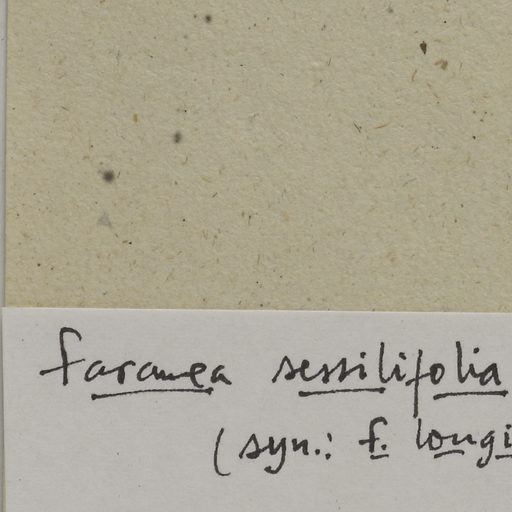 Faramea sessilifolia
(syn.: F. longi